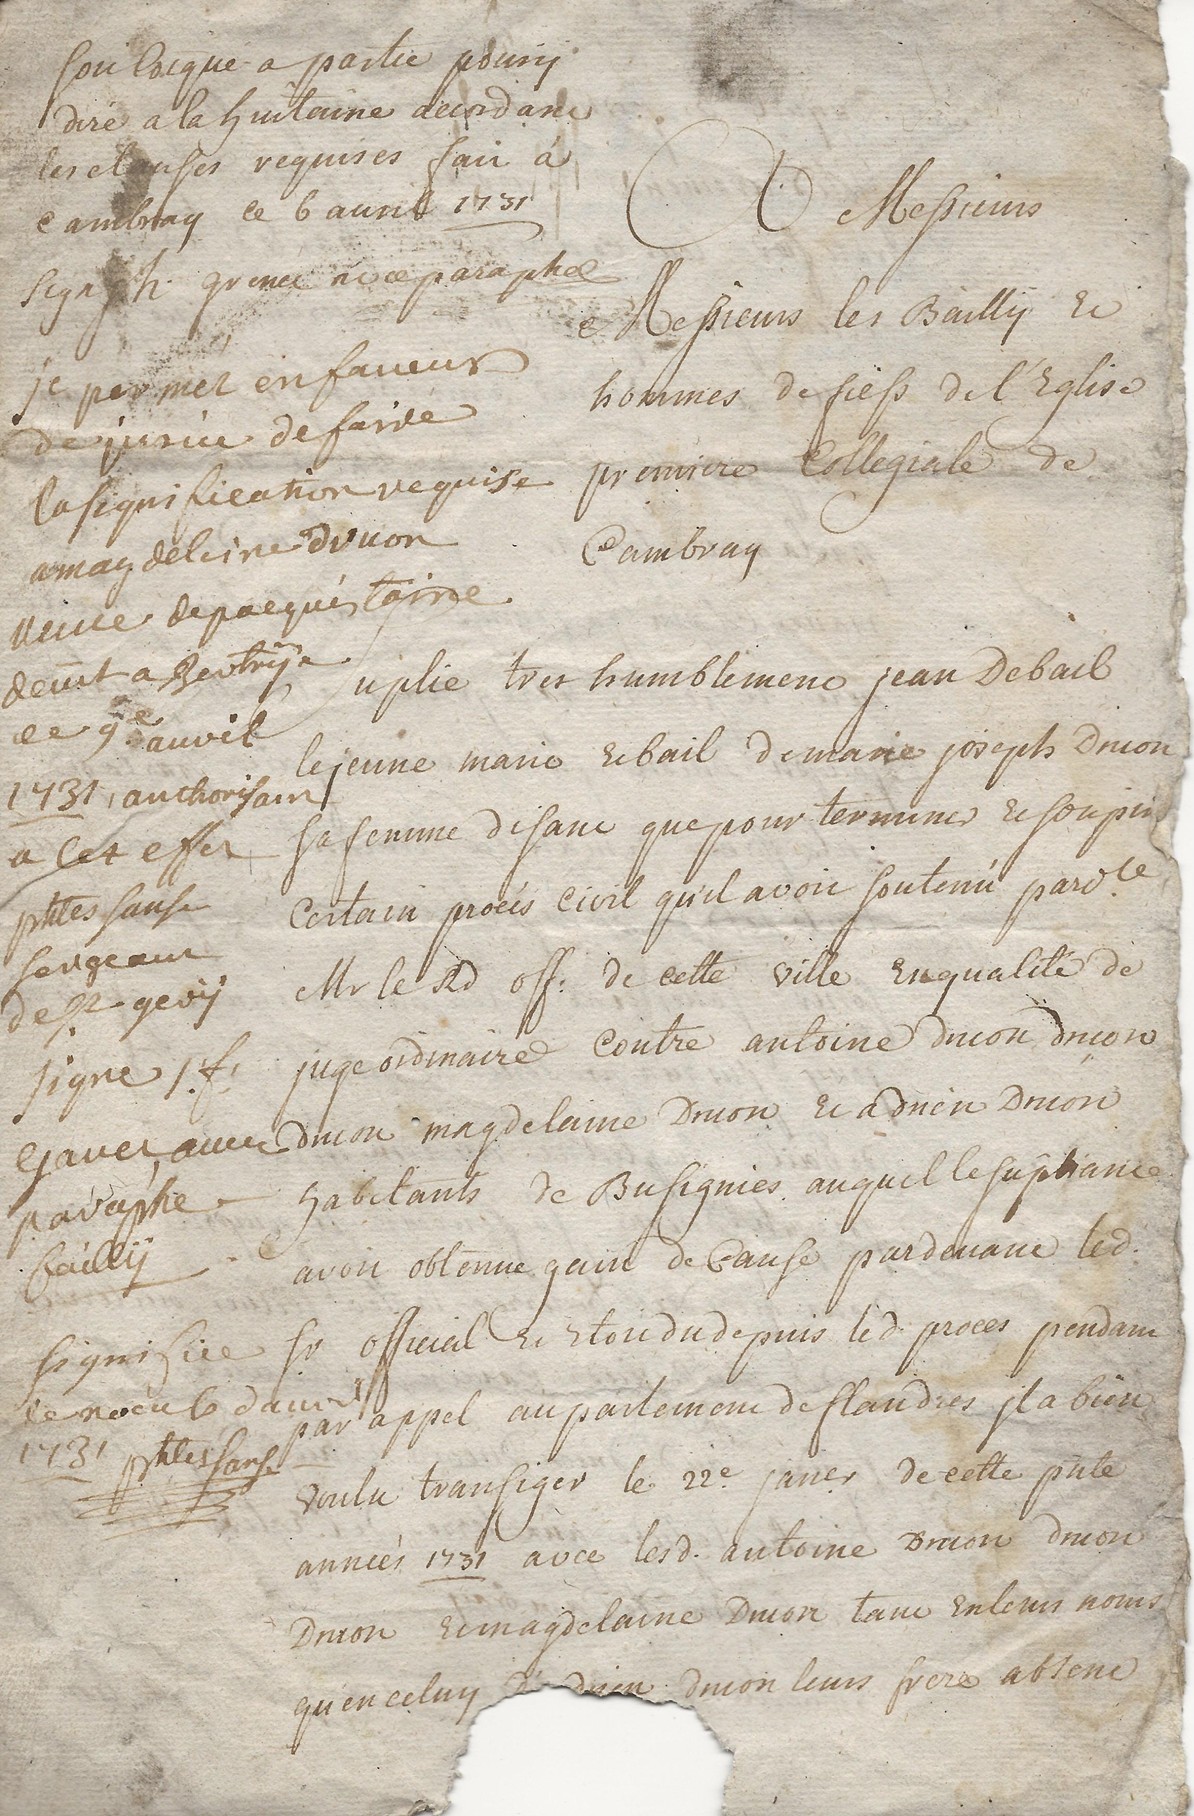 soit Coĉqué a partie pour ÿ
dire a la huitaine accordant
les clauses requises fait á
Cambray ce 6 avril 1731
signé h. grenet avec paraphe
je permet en faveur
de justice de faire
la signification requise
a magdeleine druon
veuve de pacquès taine
demt a Bertrÿ
ce 9e avril
1731, authorisant
a cet effet
phles sanse
sergeant
de St gerÿ
signe j. f.
Gavet, avec
paraphe
faillÿ
signifiée
le neeu 6 d'avril
1731 phles sanse
A Messieurs
Messieurs les Baillÿ Et
hommes de fiefs de l'Eglise
premiere Collegiale de
Cambray
suplie tres humblement jean Debail
le jeune marit Et bail de marie joseph Druon
sa femme disant que pour terminer Et soupir
Certain procés Civil qu'il avoit soutenu pard.le
Mr le Rd off: de cette ville En qualité de
juge ordinaire Contre antoine druon druon
Druon magdelaine Druon Et adrien Druon
habitants de Busignies auquel le supliant
avoit obtenue gain de Cause pardevant led.
Sr official Et Etoit du depuis led. proces pendant
par appel au parlement de flandres jl a bien
voulu transiger le 22e janer de cette pñte
année 1731 avec lesd. antoine Druon druon
Druon Et magdelaine Druon tant En leurs noms
qu'en celuy drien druon leurs frere absent